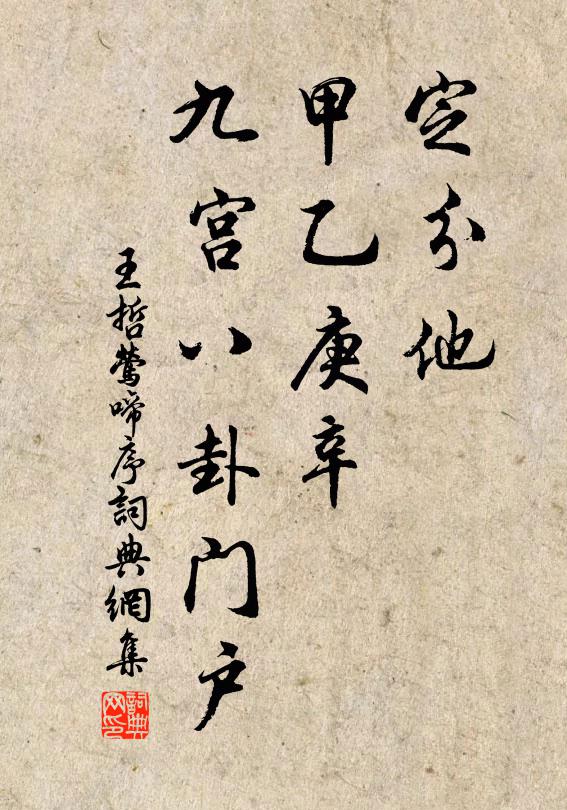 定分他
甲乙庚辛
九宫八卦门户
王哲莺啼序詞典網集
詞典网印